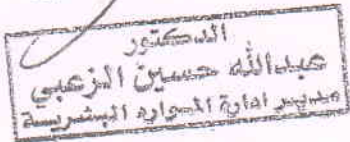 الدكتور
عبدالله حسين الزعبي
مدير ادارة الموارد البشرية